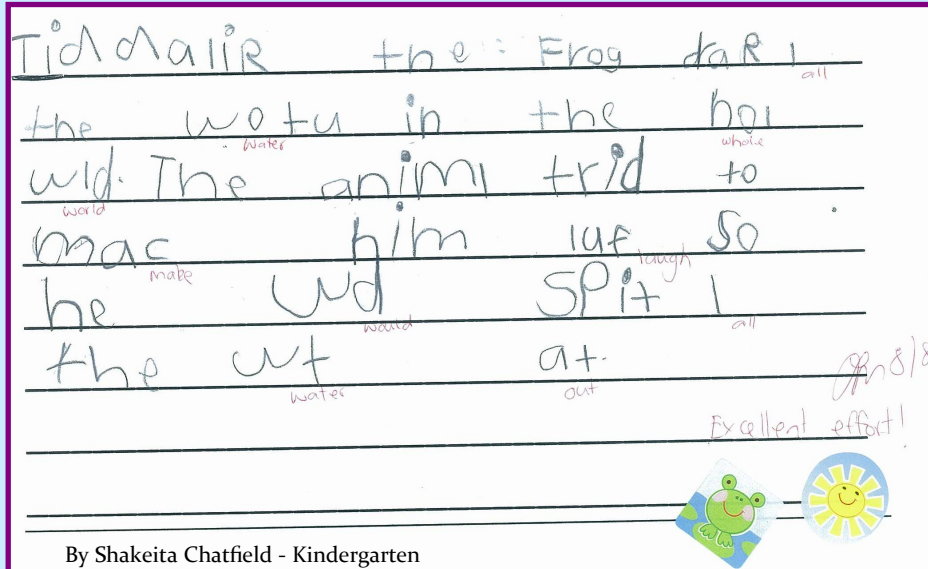 Tiddalik the Frog daRk l
all
the wotu in the hol
water whole
wld. The animl trid to
world
mac him luf so
make laugh
he wd spit l
would all
the wt at.
water out
8/8
Excellent effort!
By Shakeita Chatfield - Kindergarten